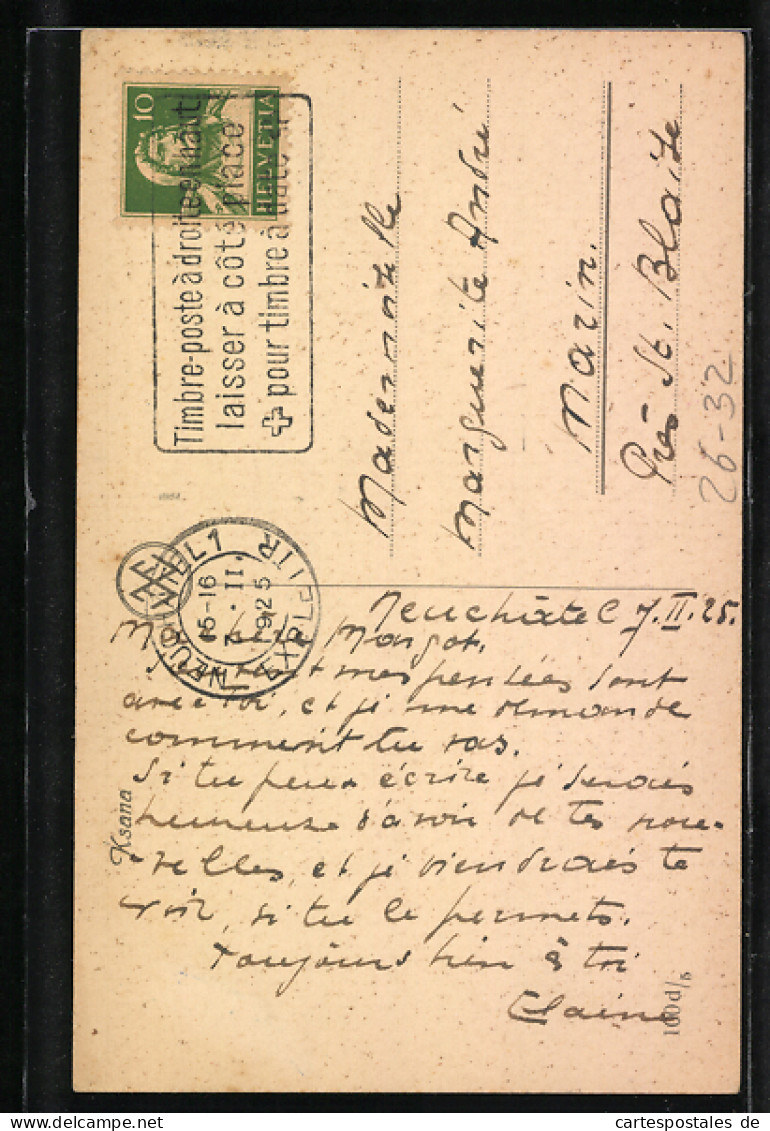 10
HELVETIA
Timbre-poste à droite en haut
laisser à côté place
pour timbre à date
Mademoiselle
Marguerite André
Marin.
Près St. Blaise
26-32
15-16
7. II.
1925
Neuchâtel 7. II. 25.
Ma chère Margot.
mes pensées sont
avec toi, et je me demande
comment tu vas.
Si tu peux écrire je serais
heureuse d'avoir de tes nou-
velles, et je viendrais te
voir, si tu le permets.
Toujours bien à toi
Claire
Ksana
100d/5
cartespostales de